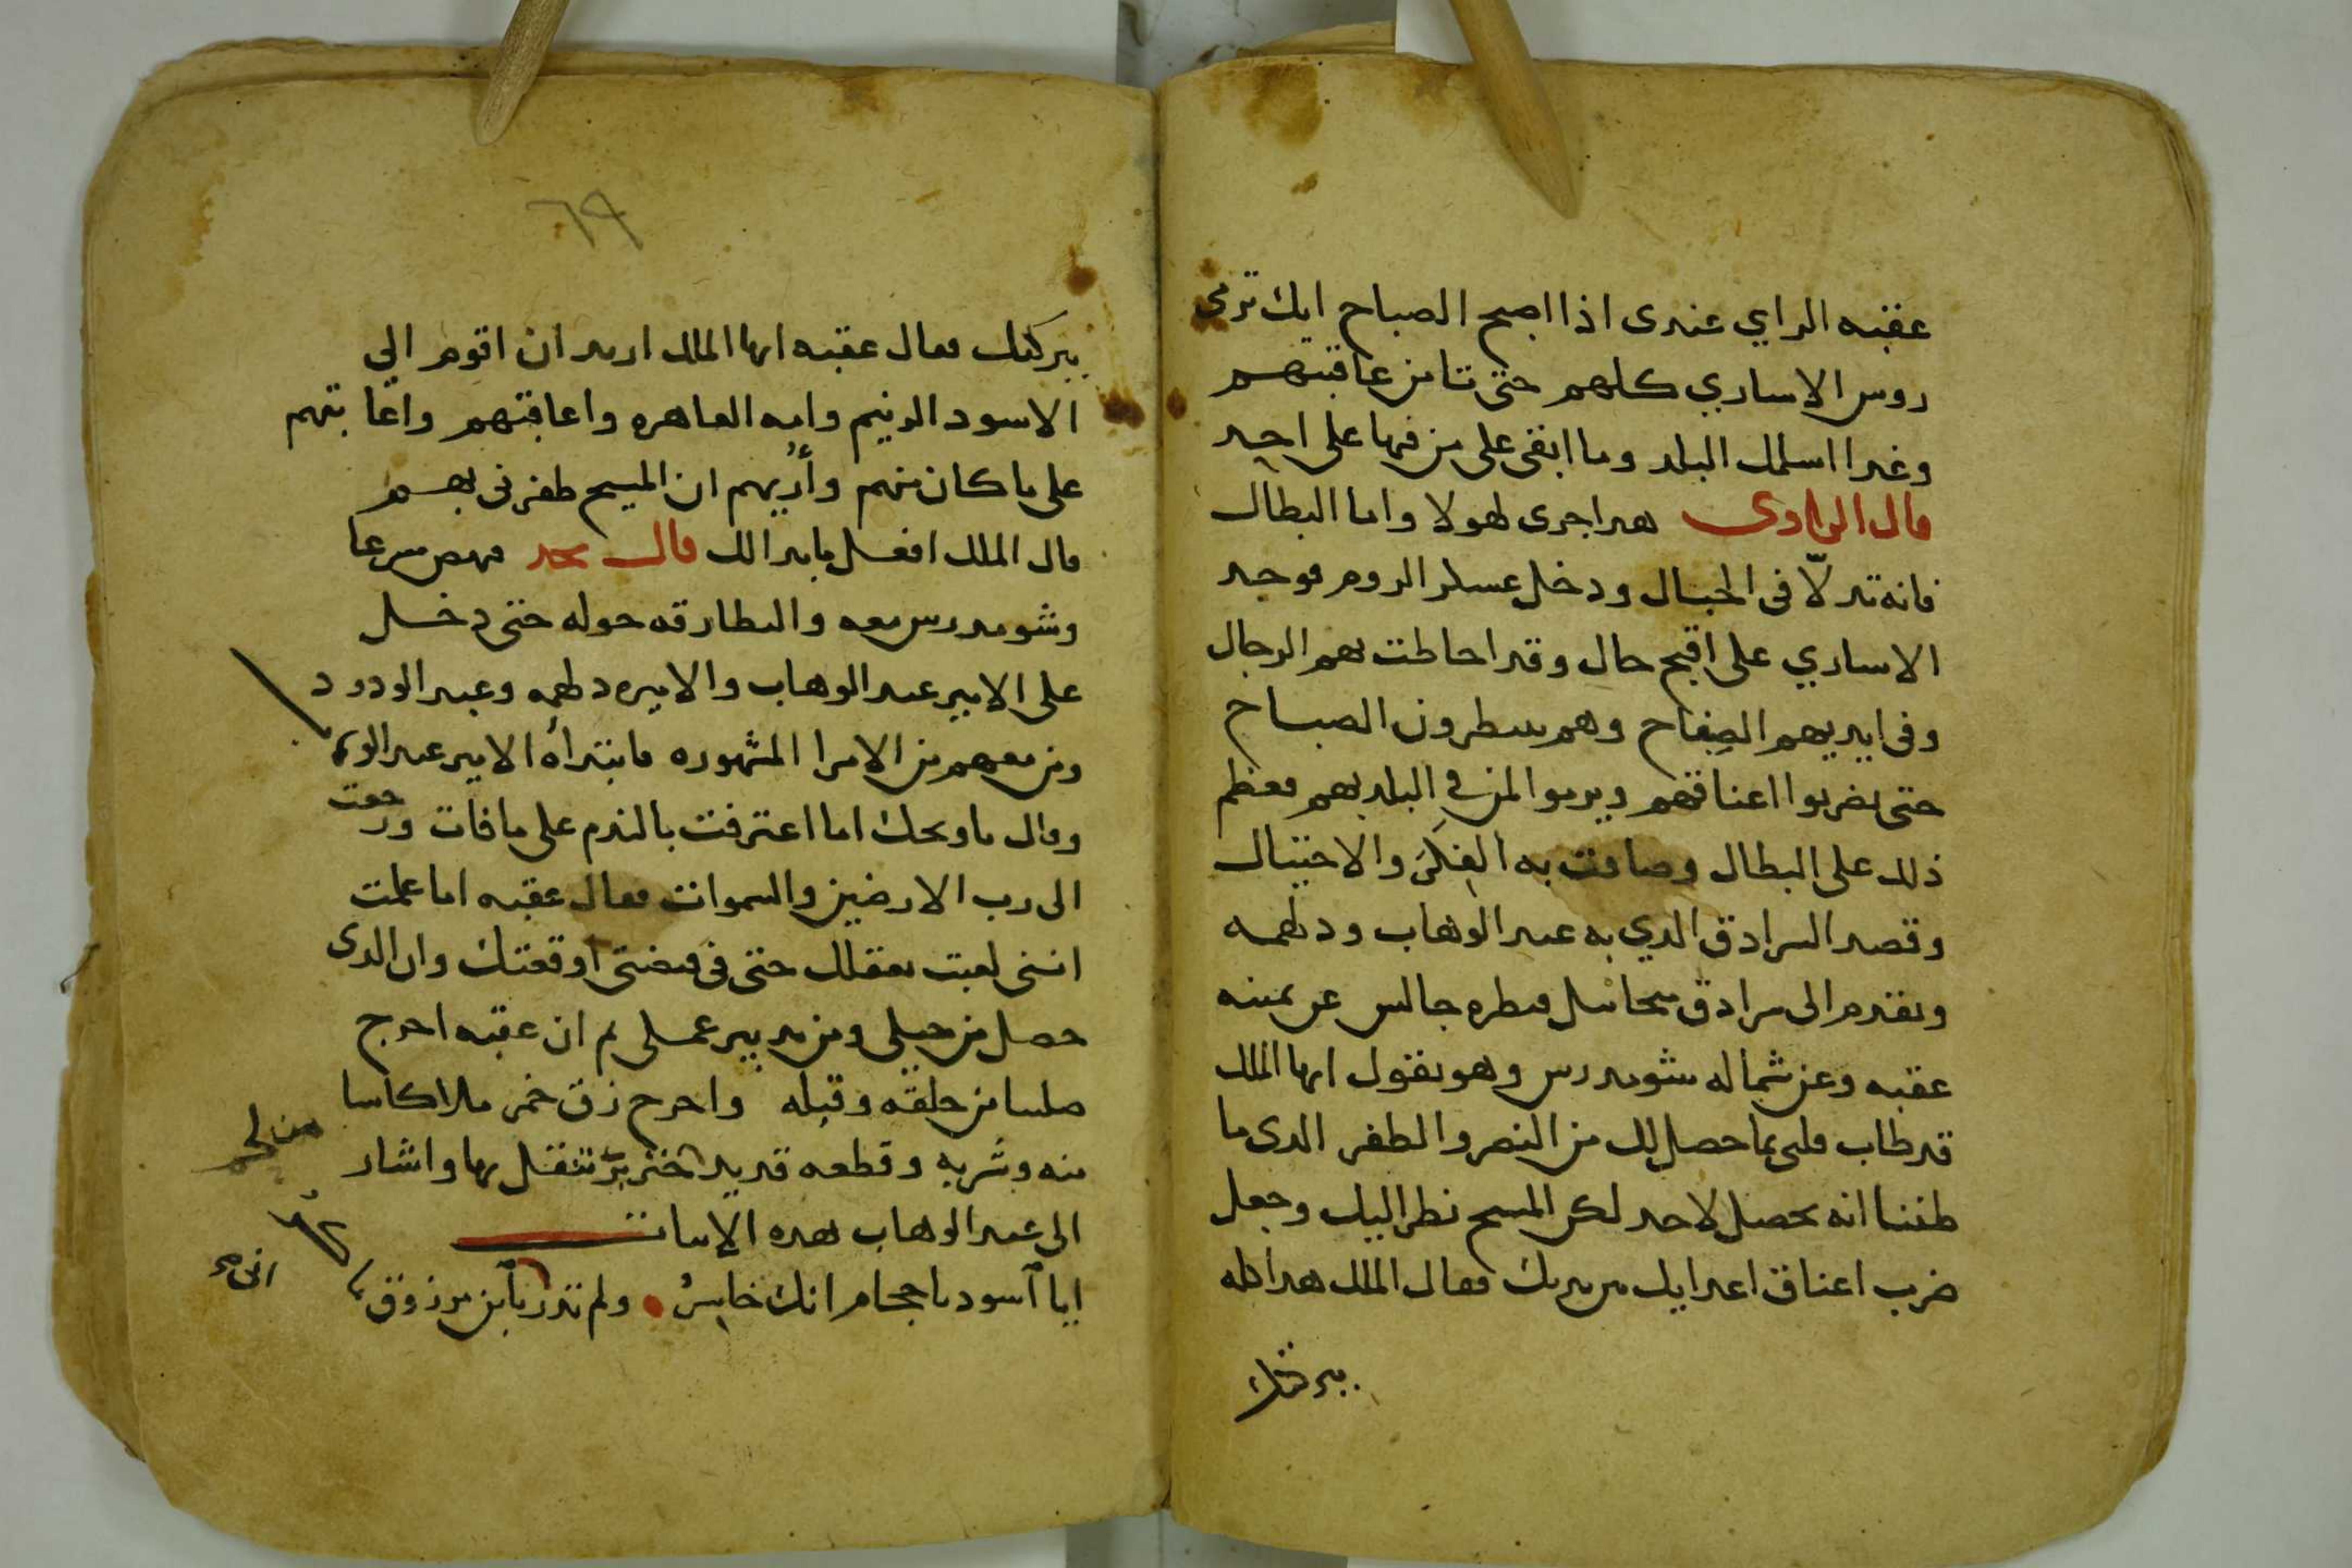 عقبه الراي عندى اذا اصبح الصباح انك ترمى
روس الاساري كلهم حتى تامن عاقبتهم
وغدا اسلمك البلد وما ابقى على من فيها على احد
قال الراوى هدا جرى لهولا واما البطال
فانه تدلّا فى الجبال ودخل عسكر الروم فوجد
الاساري على اقبح حال وقد احاطت بهم الرجال
وفى ايديهم الصِفاح وهم ينتظرون الصباح
حتى يضربوا اعناقهم ويرموا لمن في البلد بهم فعظم
ذلك على البطال وضاقت به الفِكَر والاحتيال
وقصد السرادق الدي به عبد الوهاب ودلهمه
وتقدم الى سرادق ميخائيل فنظره جالس عن يمينه
عقبه وعن شماله شومدرس وهو يقول ايها الملك
قد طاب قلبى بما حصل لك من النصر والظفر الدى ما
ظننا انه يحصل لاحد لكن المسيح نظر اليك وجعل
ضرب اعناق اعدايك بين يديك فقال الملك هدا كله
ببركتك
٦٩
ببركتك فقال عقبه ايها الملك اريد ان اقوم الي
الاسود الدنيم وامه العاهره واعاقبهم واعاتبهم
على ما كان منهم وأُريهم ان المسيح ظفرنى بهم
قال الملك افعل ما بدا لك قال نجد فنهض سرعا
وشومدرس معه والبطارقه حوله حتى دخل
على الامير عبد الوهاب والاميره دلهمه وعبد الودود
ومن معهم من الامرا المشهوره فابتدأه الامير عبد الوهاب
وقال ياويحك اما اعترفت بالندم على ما فات ورجعت
الى رب الارضين والسموات فقال عقبه اما علمت
اننى لعبت بعقلك حتى فى قبضتى اوقعتك وان الدى
حصل من حيلى ومن تدبير عملى ثم ان عقبه اخرج
صليبا من حلقه وقبله واخرج زق خمر ملا كاسا
منه وشربه وقطعه قديد خنزير تنقل بها واشار
من لحم
الى عبد الوهاب بهده الابيات
ايا آسود يا حجام انك خاسِرُ ولم تدر يا بن مرزوق
انى